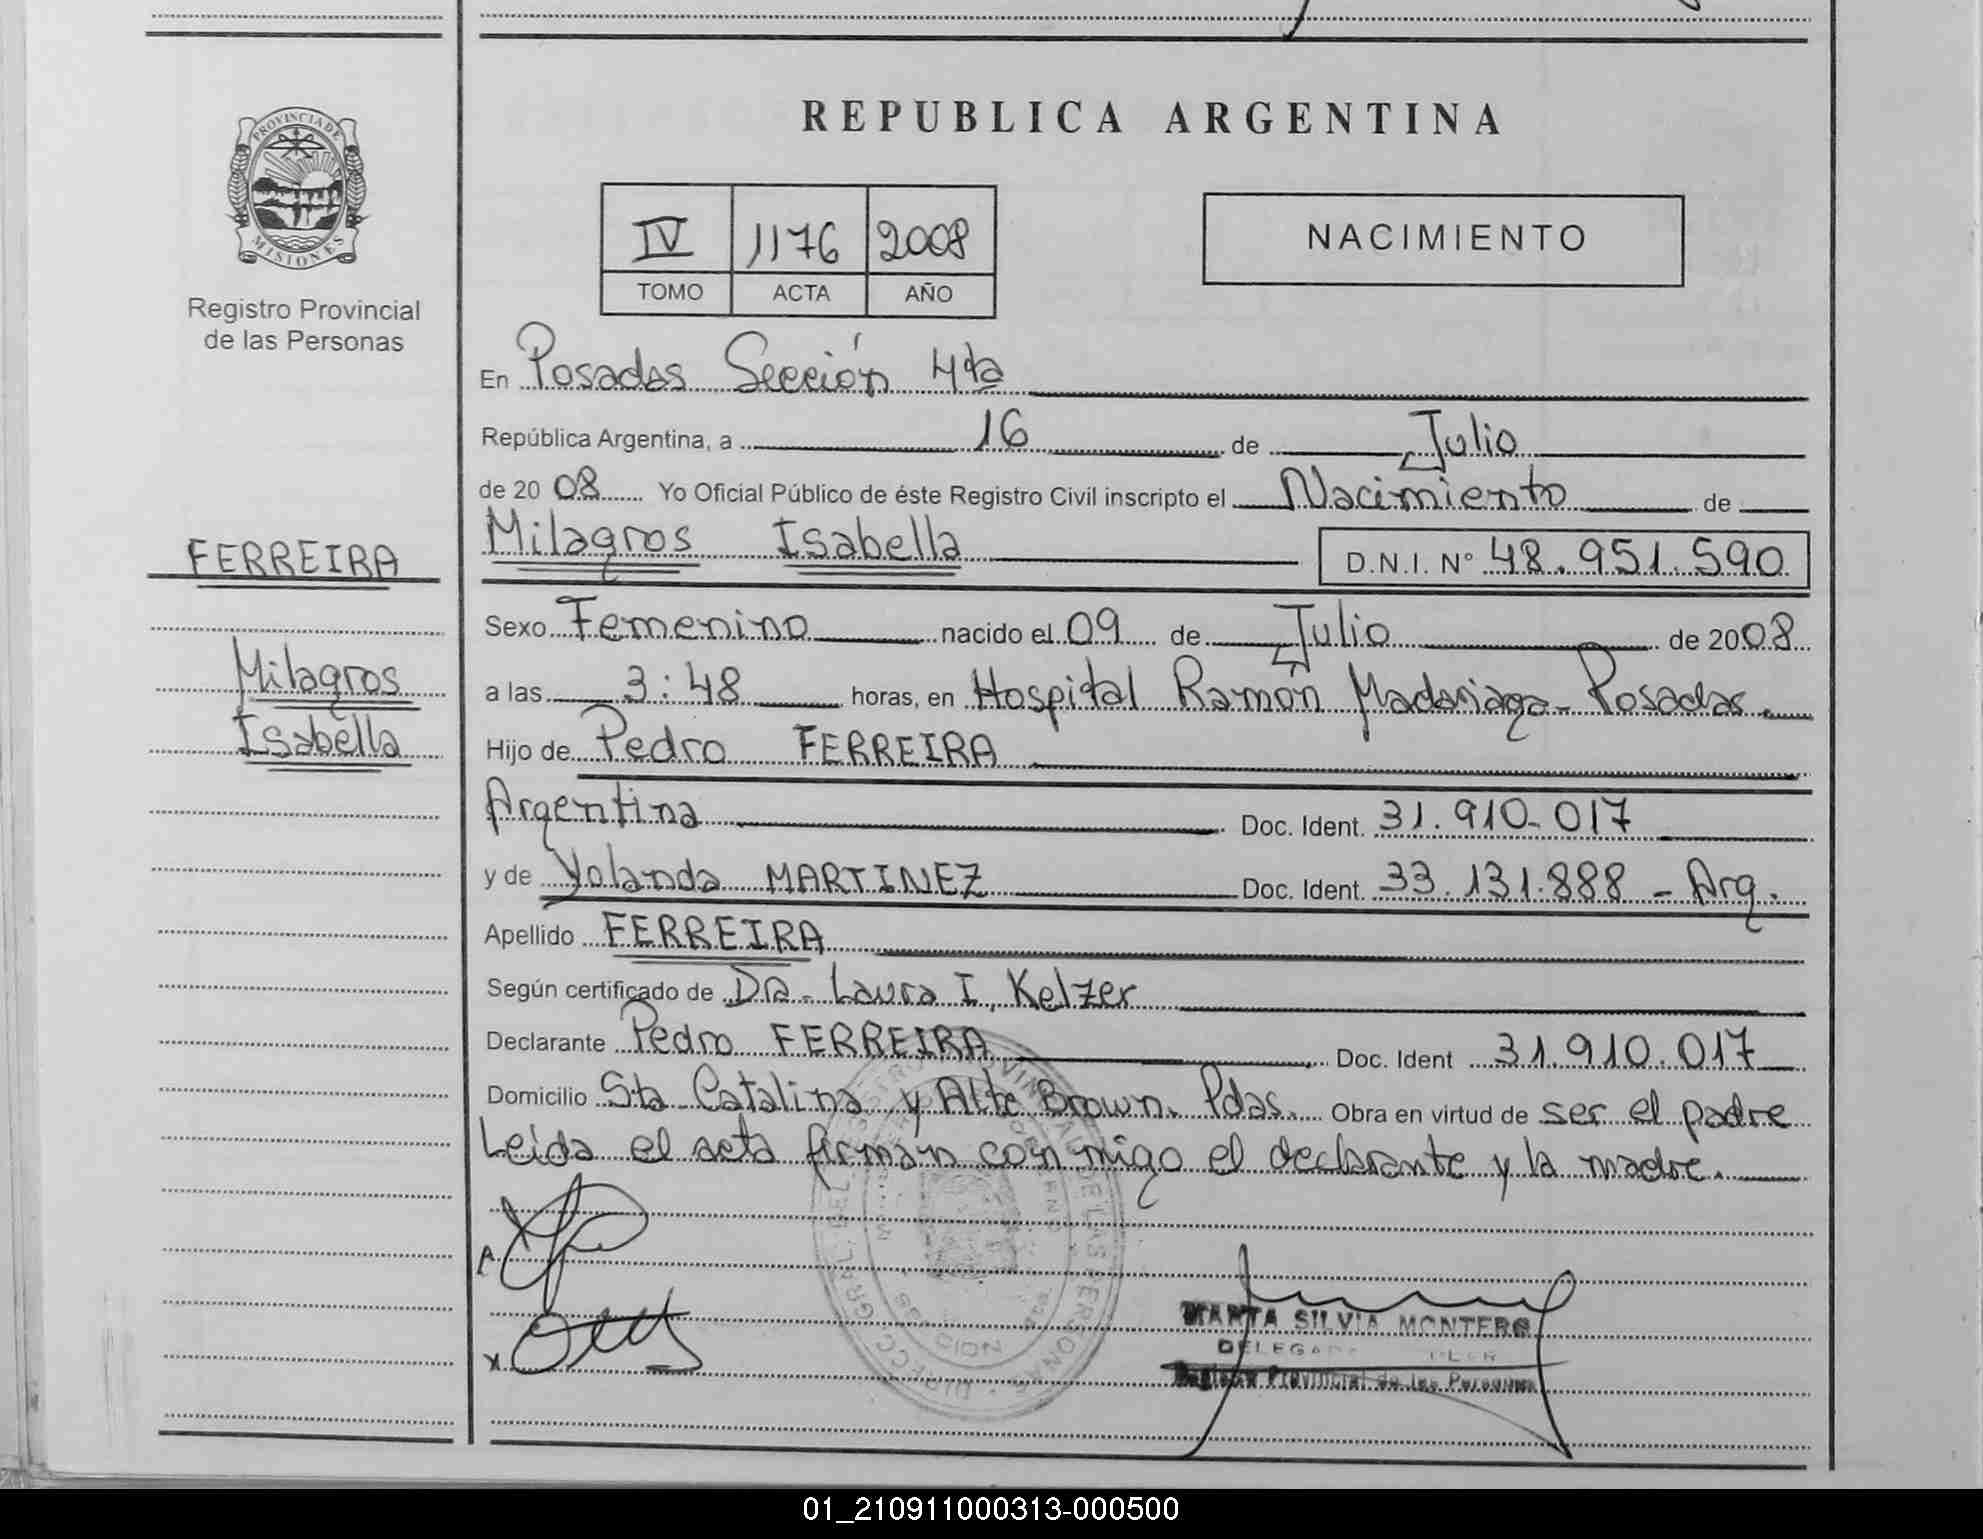 REPUBLICA ARGENTINA
PROVINCIA DE MISIONES
Registro Provincial
de las Personas
IV 1176 2008
TOMO ACTA AÑO
NACIMIENTO
En Posadas Sección 4ta
República Argentina, a 16 de Julio
de 2008 Yo Oficial Público de éste Registro Civil inscripto el Nacimiento de
Milagros Isabella D.N.I. N° 48.951.590
FERREIRA
Milagros
Isabella
Sexo Femenino nacido el 09 de Julio de 2008
a las 3:48 horas, en Hospital Ramón Madariaga - Posadas.
Hijo de Pedro FERREIRA
Argentina Doc. Ident. 31.910.017
y de Yolanda MARTINEZ Doc. Ident. 33.131.888 - Arg.
Apellido FERREIRA
Según certificado de Dra. Laura I. Kelzer
Declarante Pedro FERREIRA Doc. Ident 31.910.017
Domicilio Sta Catalina y Alte Brown. Pdas. Obra en virtud de ser el padre
Leida el acta firmán con migo el declarante y la madre.
MARTA SILVIA MONTERO
Registro Provincial de las Personas
01_210911000313-000500